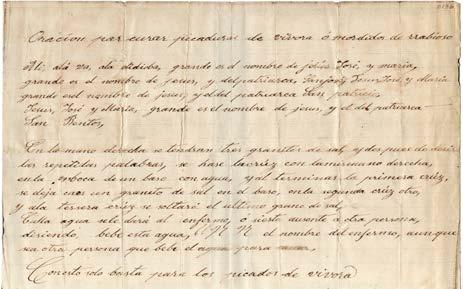 Oracion par curar picaduras de vivora ó mordidos de rrabioso
Al; ala va, ala didiba, grande es el nombre de jesus José, y maria,
grande es el nombre de jesus, y del patriarca Sanjose, Jesus José, y Maria
grande esel nombre de jesus, y el del patriarca San patricio,
Jesus, José y Maria, grande es el nombre de jesus, y el del patriarca
San Benito,
En la mano derecha se tendran tres granitos de sal, y des pues de desir
las repetidas palabras, se hase lacrúz con lamismamano derecha,
enla boca de un baso con agua, y al terminar la primera crúz,
se deja caer un granito de sal en el baso, enla segunda crúz otro,
y ala tersera crúz se soltará el ultimo grano de sal,
Esta agua sele dará al enfermo, ó siesta ausente a otra persona,
disiendo, bebe esta agua, N N el nombre del enfermo, aun que
sea otra persona que bebe el agua para
Conesto solo basta para los picados de vivora